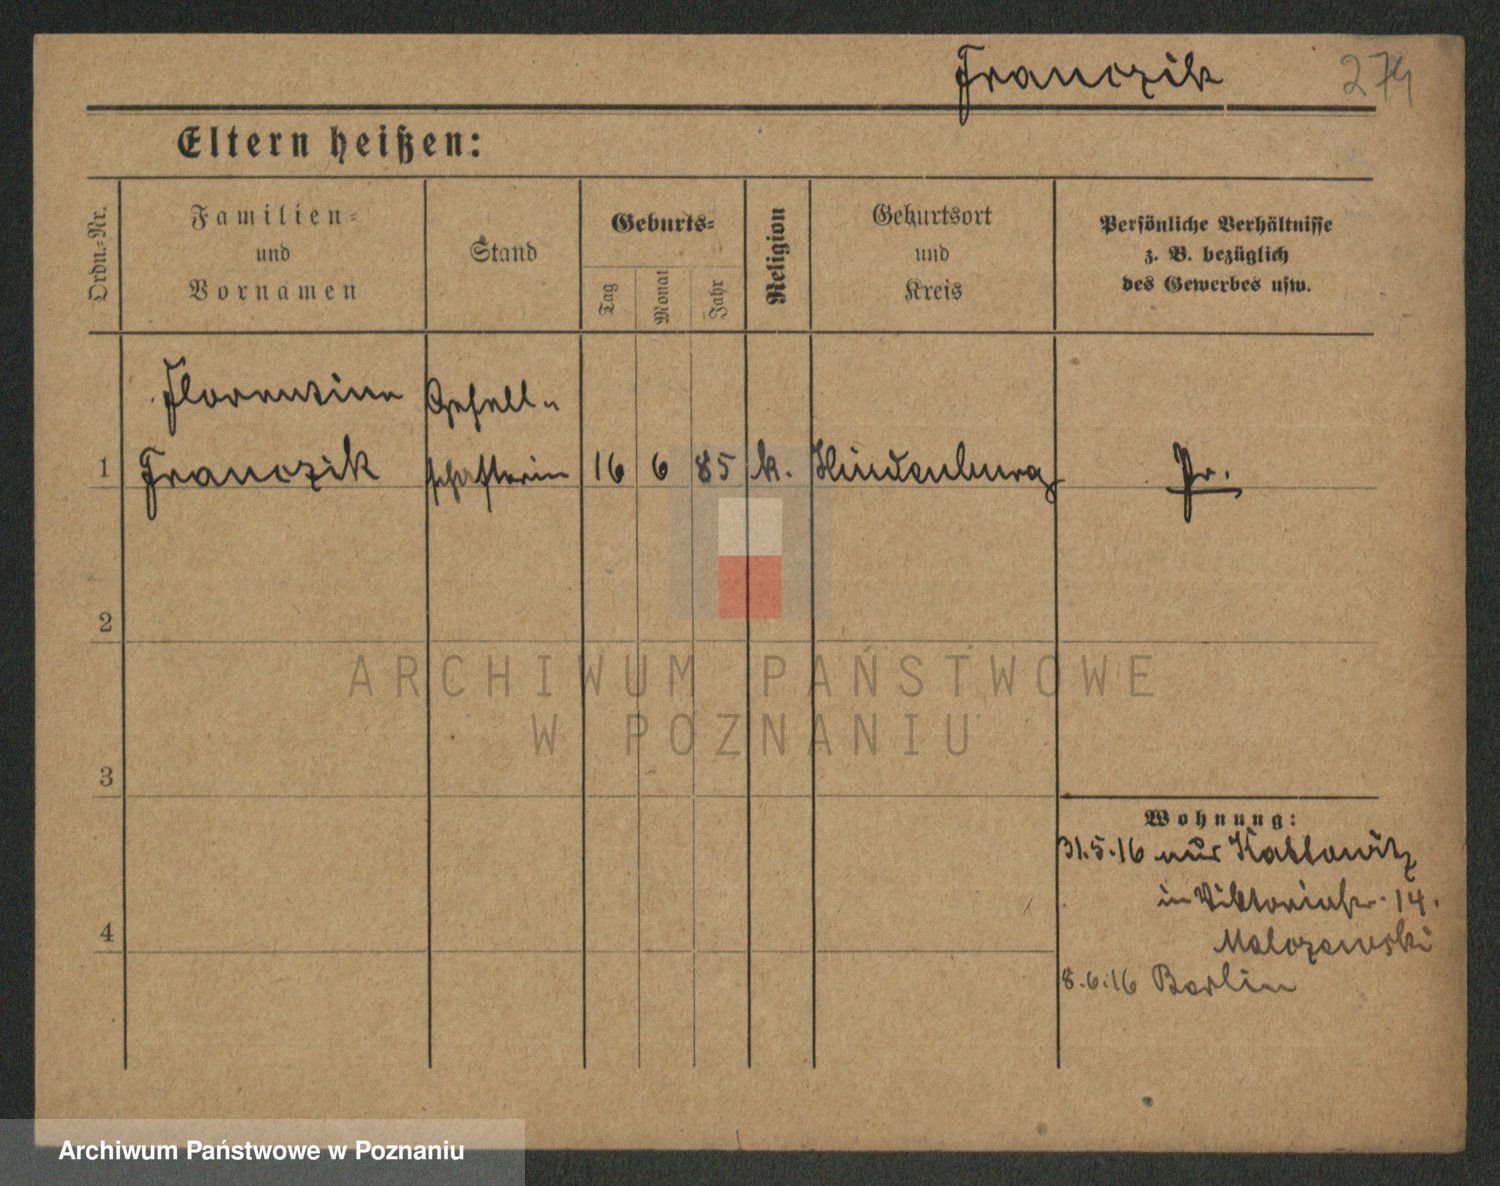 Franczik 274
Eltern heißen:
Ordn.-Nr.
Familien-
und
Vornamen
Stand
Geburts-
Tag
Monat
Jahr
Religion
Geburtsort
und
Kreis
Persönliche Verhältnisse
z. B. bezüglich
des Gewerbes usw.
Florentine Gesell-
1 Franczik schafterin 16 6 85 k. Hindenburg Pr.
2
ARCHIWUM PAŃSTWOWE
W POZNANIU
3
Wohnung:
31.5.16 Kattowitz
in Viktoriastr. 14.
4 Malczewski
8.6.16 Berlin
Archiwum Państwowe w Poznaniu